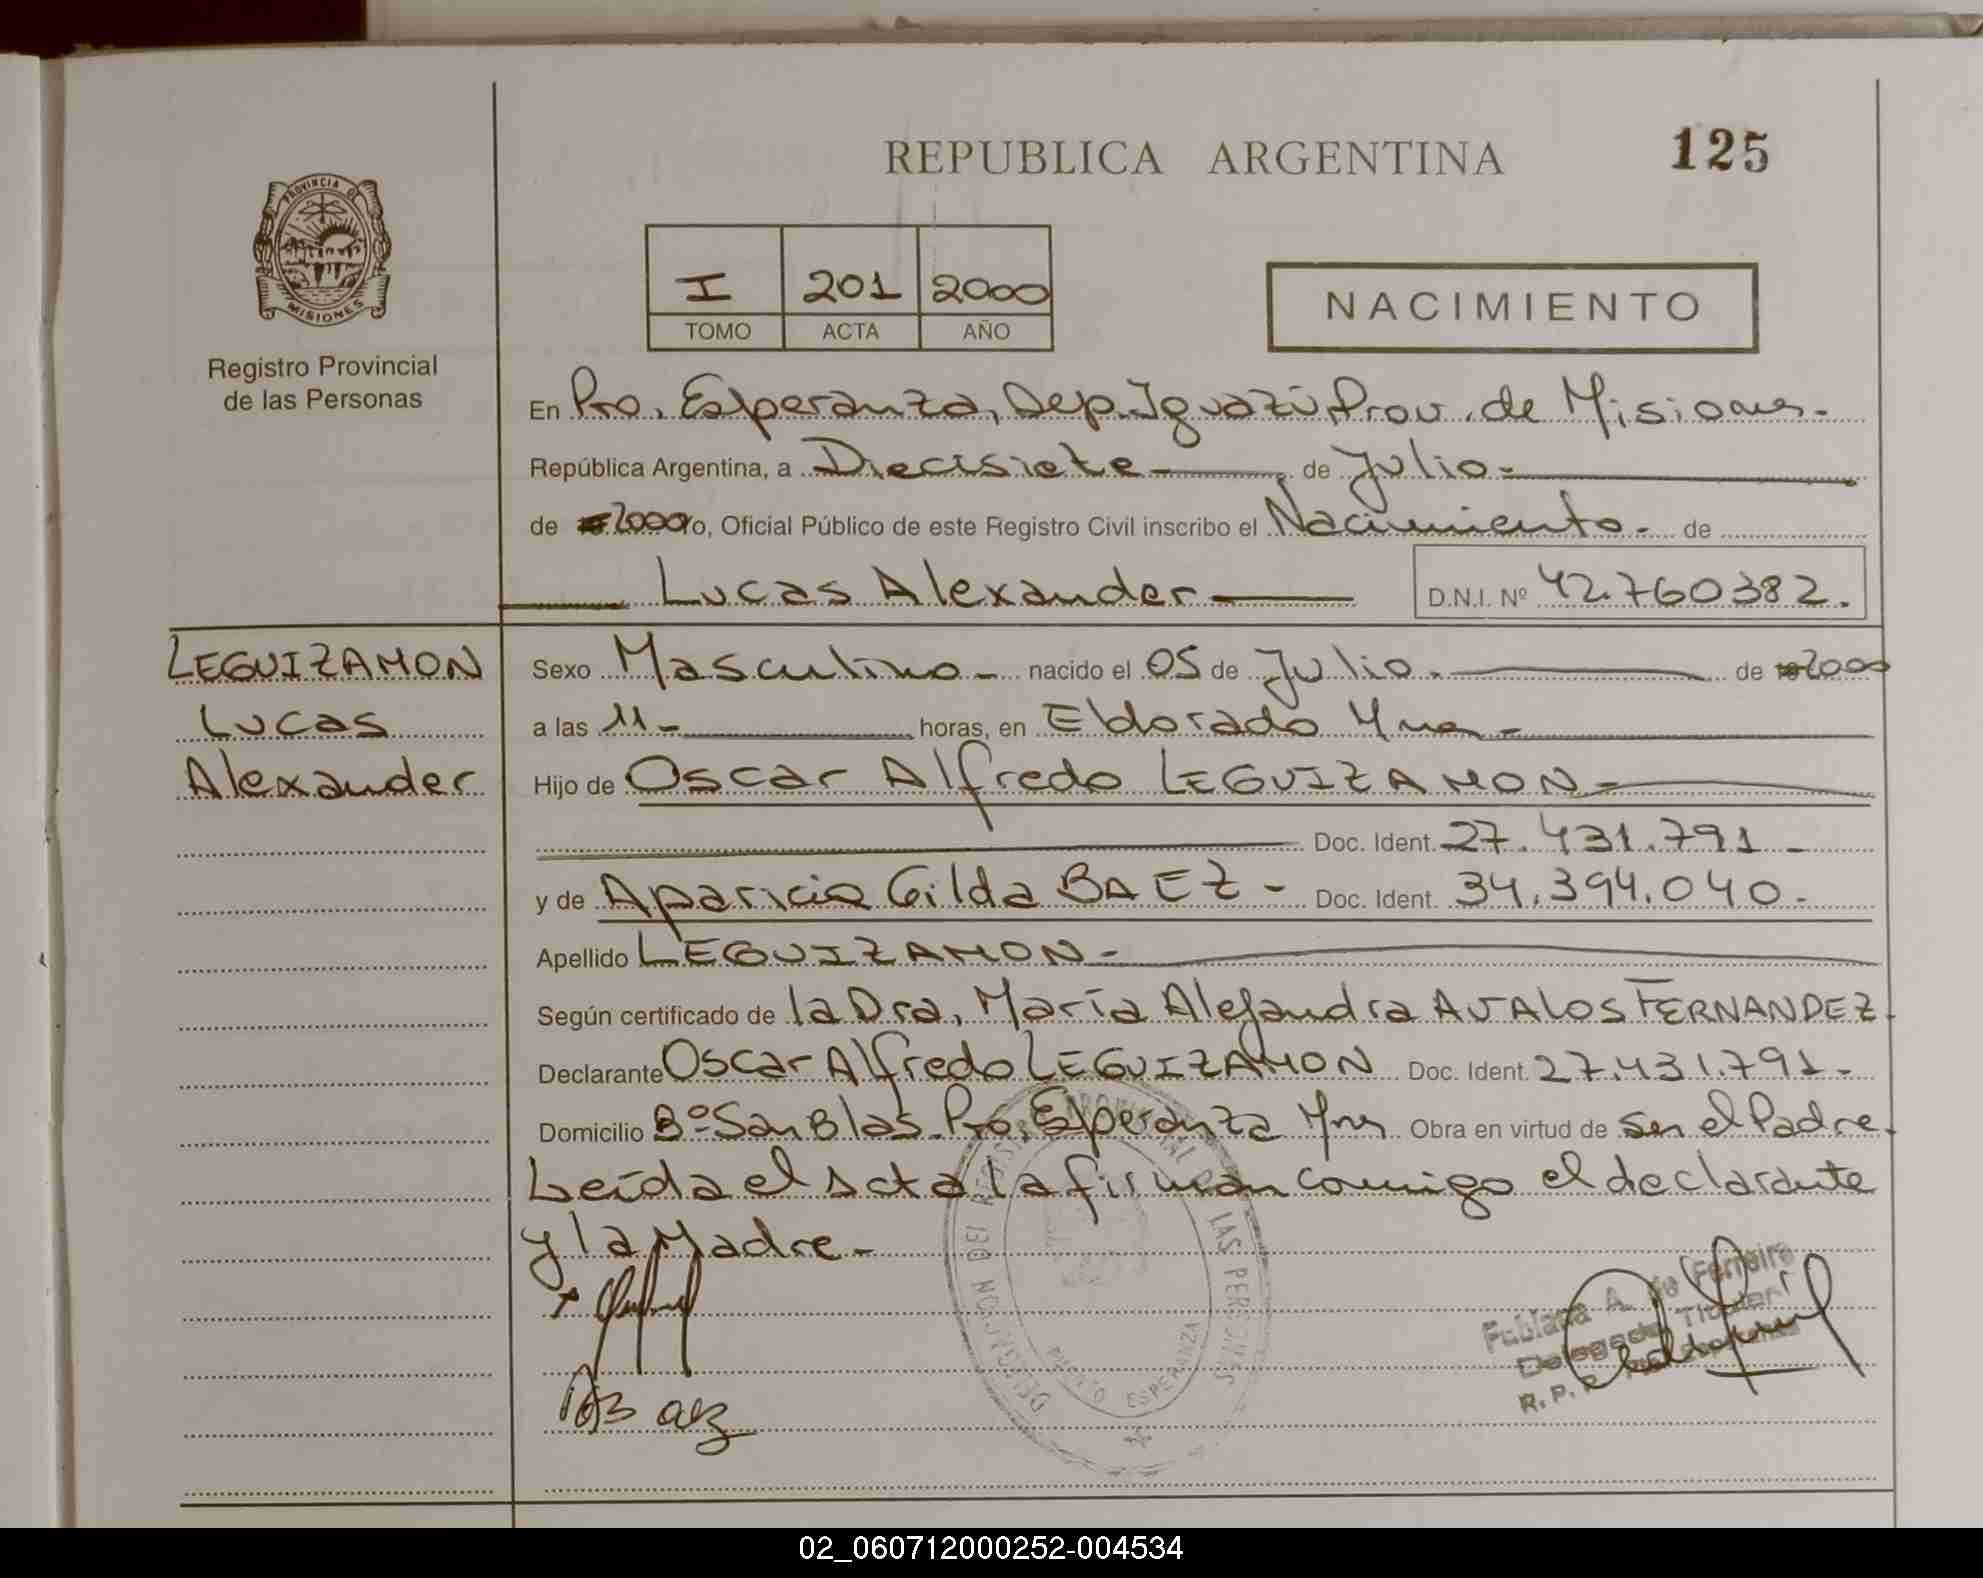 REPUBLICA ARGENTINA
125
PROVINCIA DE
MISIONES
Registro Provincial
de las Personas
I 201 2000
TOMO ACTA AÑO
NACIMIENTO
En Pto. Esperanza, Dep. Iguazú, Prov. de Misiones.-
República Argentina, a Diecisiete - de Julio -
de 2000 o, Oficial Público de este Registro Civil inscribo el Nacimiento - de
Lucas Alexander
D.N.I. Nº 42.760382.
LEGUIZAMON
Lucas
Alexander
Sexo Masculino - nacido el 05 de Julio. de 2000
a las 11 - horas, en Eldorado Mnes -
Hijo de Oscar Alfredo LEGUIZAMON -
Doc. Ident. 27.431.791 -
y de Aparicia Gilda BAEZ - Doc. Ident. 34.394.040 -
Apellido LEGUIZAMON -
Según certificado de la Dra. María Alejandra AVALOS FERNANDEZ.
Declarante Oscar Alfredo LEGUIZAMON Doc. Ident. 27.431.791 -
Domicilio Bº San Blas. Pto. Esperanza Mnes Obra en virtud de ser el Padre.
Leída el acta la firman conmigo el declarante
y la Madre -
Baez
DELEGACION DEL REGISTRO PROVINCIAL DE LAS PERSONAS
PUERTO ESPERANZA
Fabiana A. de Ferreira
Delegada Titular
R. P. P.
02_060712000252-004534